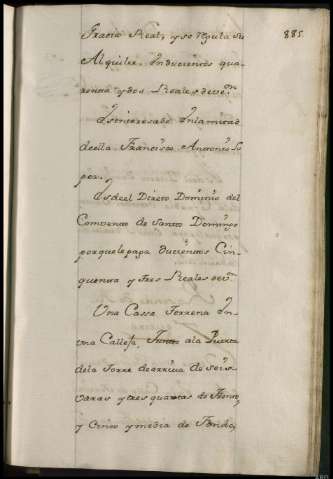 885
Gracia Real, y se regula su
Alquiler. en ducientos qua-
renta y dos Reales de v.on
Es interesado en la mitad
de ella. Francisco Antonio Lo
pez.
Es de el Directo Dominio del
Combento de Santo Domingo
porque le paga ducientos Cin
quenta y tres Reales de v.n
Una Cassa Terrena en
una Calleja, Junto a la Puerta
de la Torre de arriva de seis
varas y tres quartas de frente,
y Cinco y media de fondo,